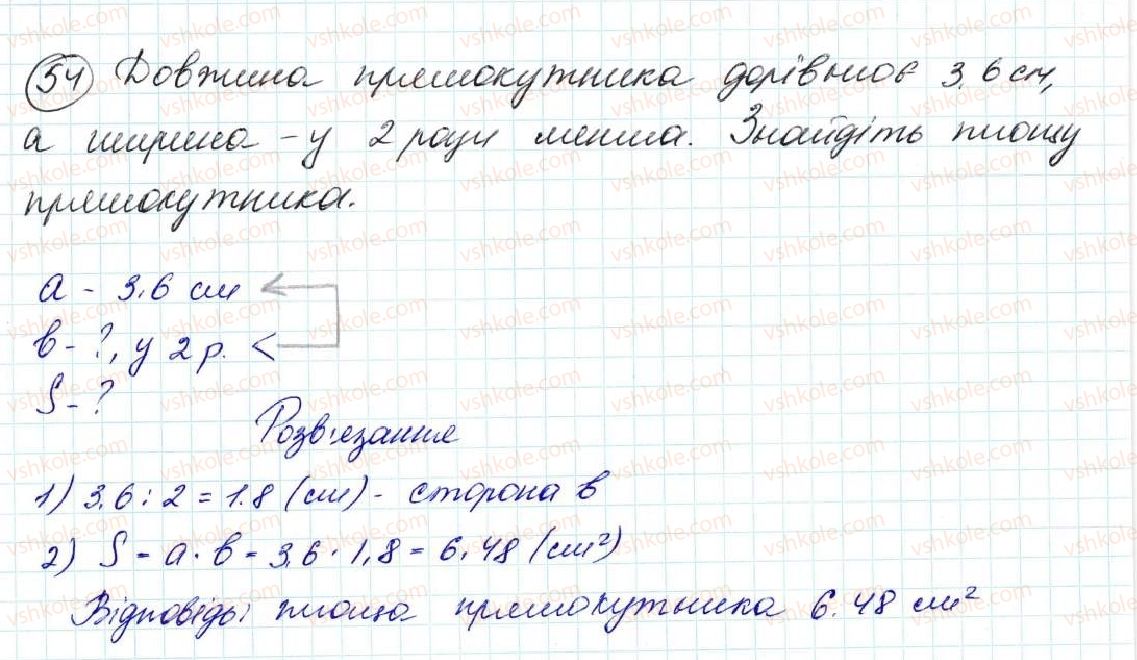 54 Довжина прямокутника дорівнює 3,6 см,
а ширина - у 2 рази менша. Знайдіть площу
прямокутника.
a - 3,6 см
b - ?, у 2 р. <
S - ?
Розв'язання
1) 3,6 : 2 = 1.8 (см) - сторона b
2) S = a · b = 3,6 · 1,8 = 6,48 (см²)
Відповідь: площа прямокутника 6.48 см²